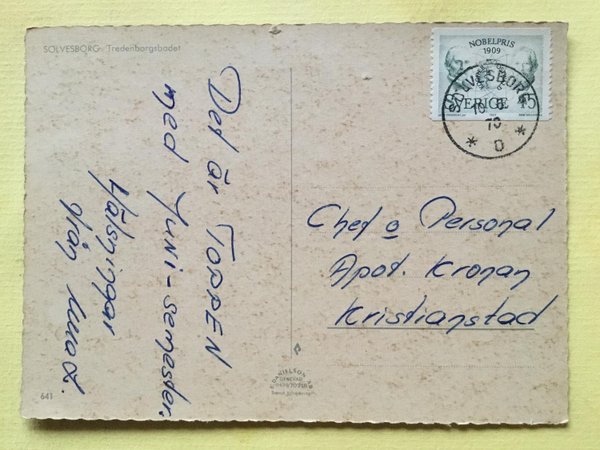 SÖLVESBORG. Tredenborgsbadet
NOBELPRIS
1909
SVERIGE 45
SÖLVESBORG
10 6
70
* D *
Det är TOPPEN
med Juni-semester.
Hälsningar
från
Chef o Personal
Apot. Kronan
Kristianstad
641